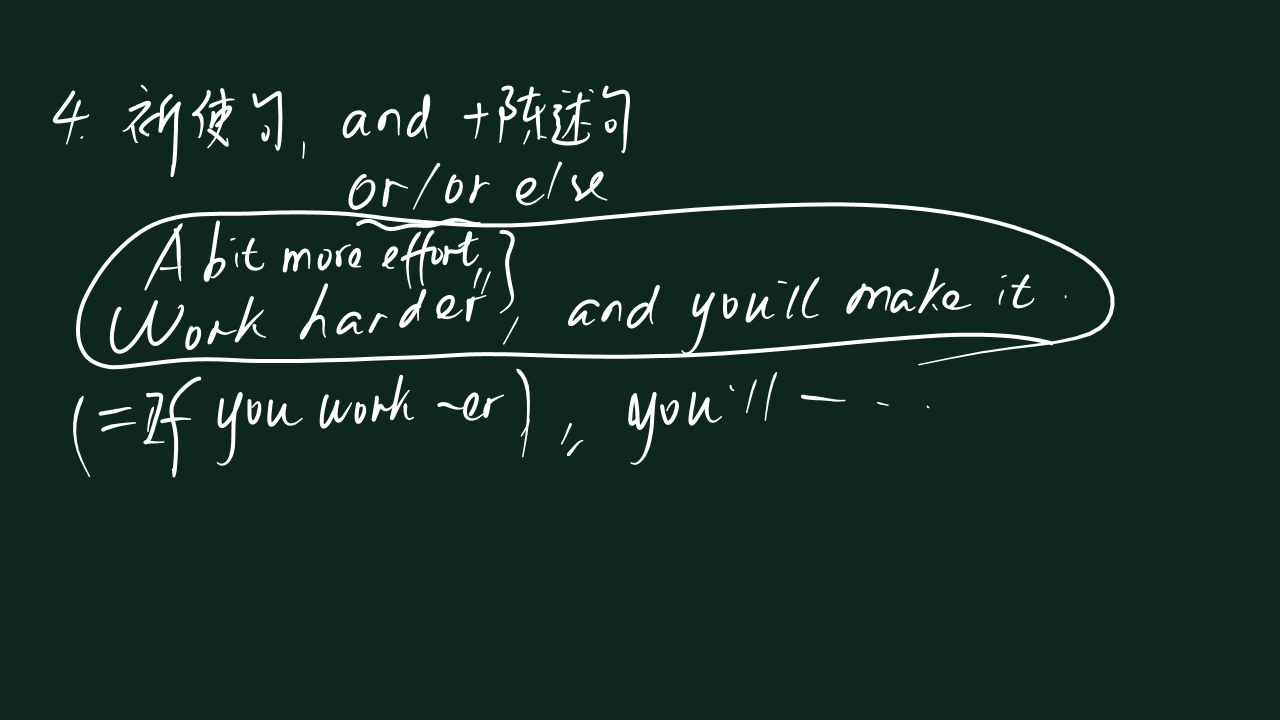 4. 祈使句, and +陈述句
or/or else
A bit more effort,
Work harder, and you'll make it.
(=If you work ~er), you'll — - - .